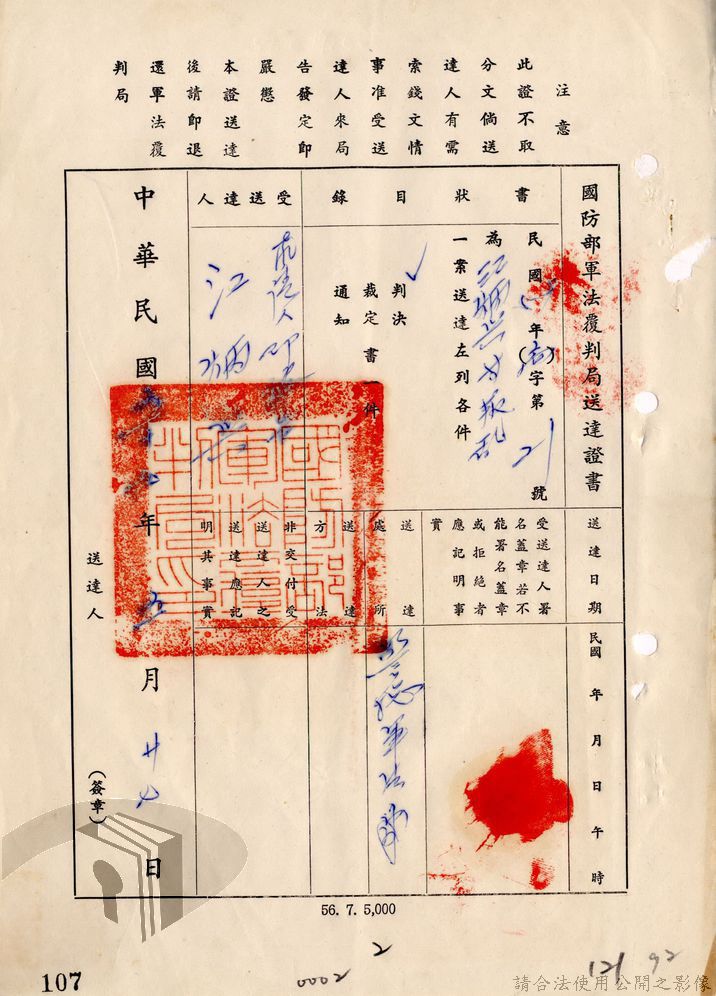 注意
此證不取
分文倘送
達人有需
索錢文情
事准受送
達人來局
告發定即
嚴懲
本證送達
後請即退
還軍法覆
判局
國防部軍法覆判局送達證書
書狀目錄
民國 年( )字第21號
為江炳興等叛亂
一案送達左列各件
判決
裁定書一件
通知
受送達人
江炳興
送達日期
民國 年 月 日 午 時
受送達人署
名蓋章若不
能署名蓋章
或拒絕者
應記明事
實
送達處所
警總軍法處
送達方法
非交付受
送達人之
送達應記
明其事實
中華民國 年五月廿七日
送達人
(簽章)
56. 7. 5,000
2
0002
121
92
107
請合法使用公開之影像